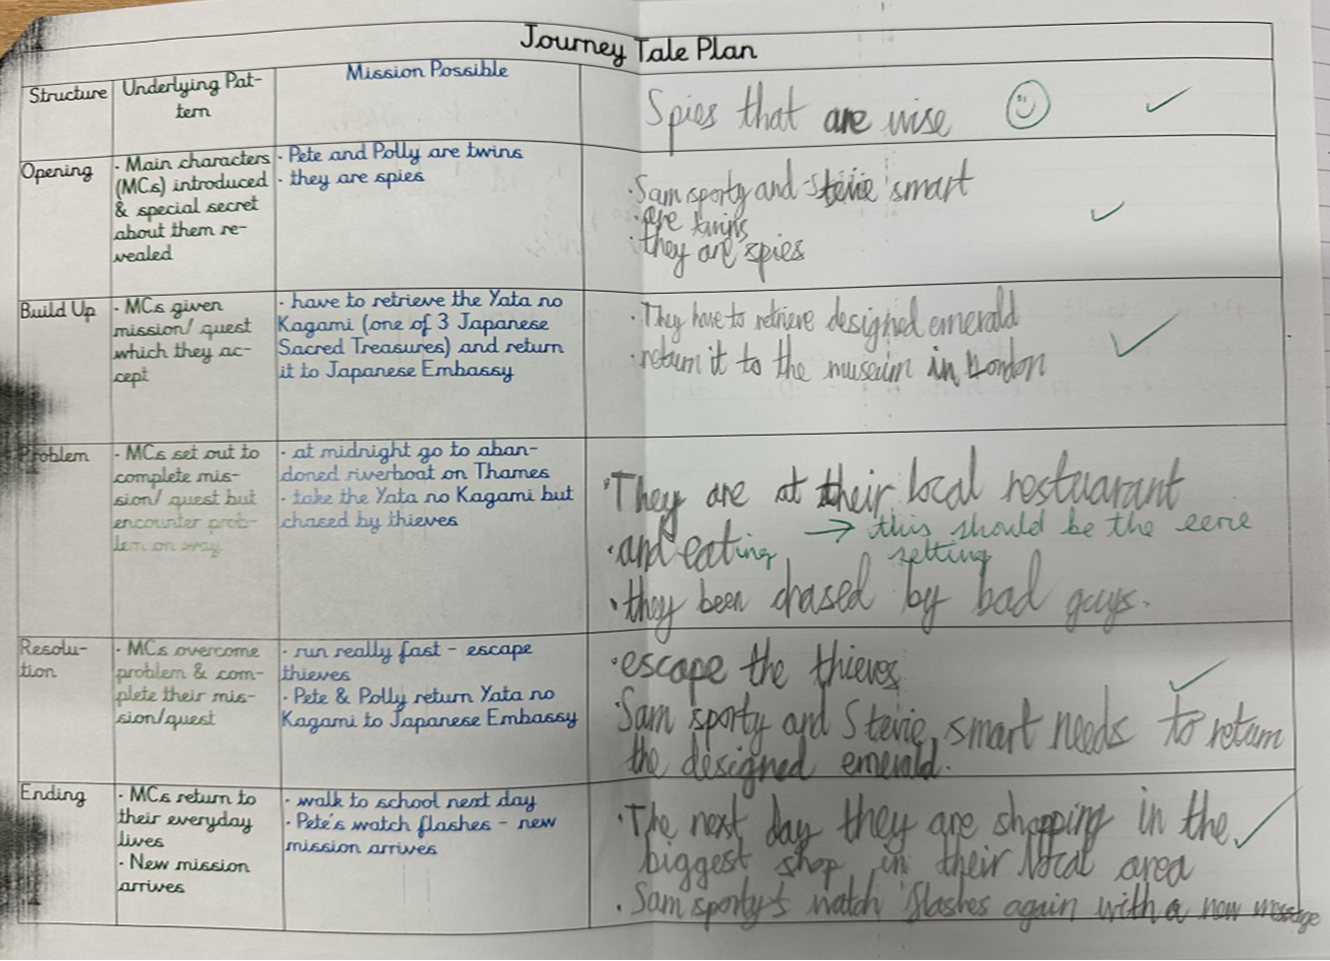 Journey Tale Plan
Structure
Underlying Pat-
tern
Mission Possible
Spies that are wise
Opening
· Main characters
(MCs) introduced
& special secret
about them re-
vealed
· Pete and Polly are twins
· they are spies
· Sam sporty and Stevie smart
· are twins
· they are spies
Build Up
· MCs given
mission/ quest
which they ac-
cept
· have to retrieve the Yata no
Kagami (one of 3 Japanese
Sacred Treasures) and return
it to Japanese Embassy
· They have to retrieve designed emerald
· return it to the museum in London
Problem
· MCs set out to
complete mis-
sion/ quest but
encounter prob-
lem on way
· at midnight go to aban-
doned riverboat on Thames
· take the Yata no Kagami but
chased by thieves
· They are at their local restuarant
· and eating → this should be the eerie
setting
· they been chased by bad guys.
Resolu-
tion
· MCs overcome
problem & com-
plete their mis-
sion/quest
· run really fast - escape
thieves
· Pete & Polly return Yata no
Kagami to Japanese Embassy
· escape the thieves
· Sam sporty and Stevie smart needs to return
the designed emerald.
Ending
· MCs return to
their everyday
lives
· New mission
arrives
· walk to school next day
· Pete's watch flashes - new
mission arrives
· The next day they are shopping in the
biggest shop in their local area
· Sam sporty's watch flashes again with a new message